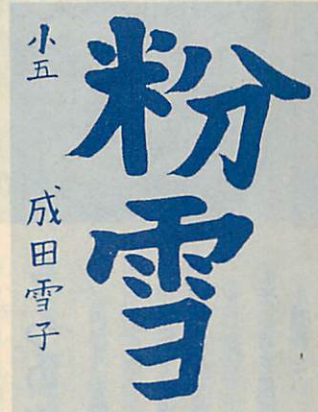 粉雪
小五 成田雪子